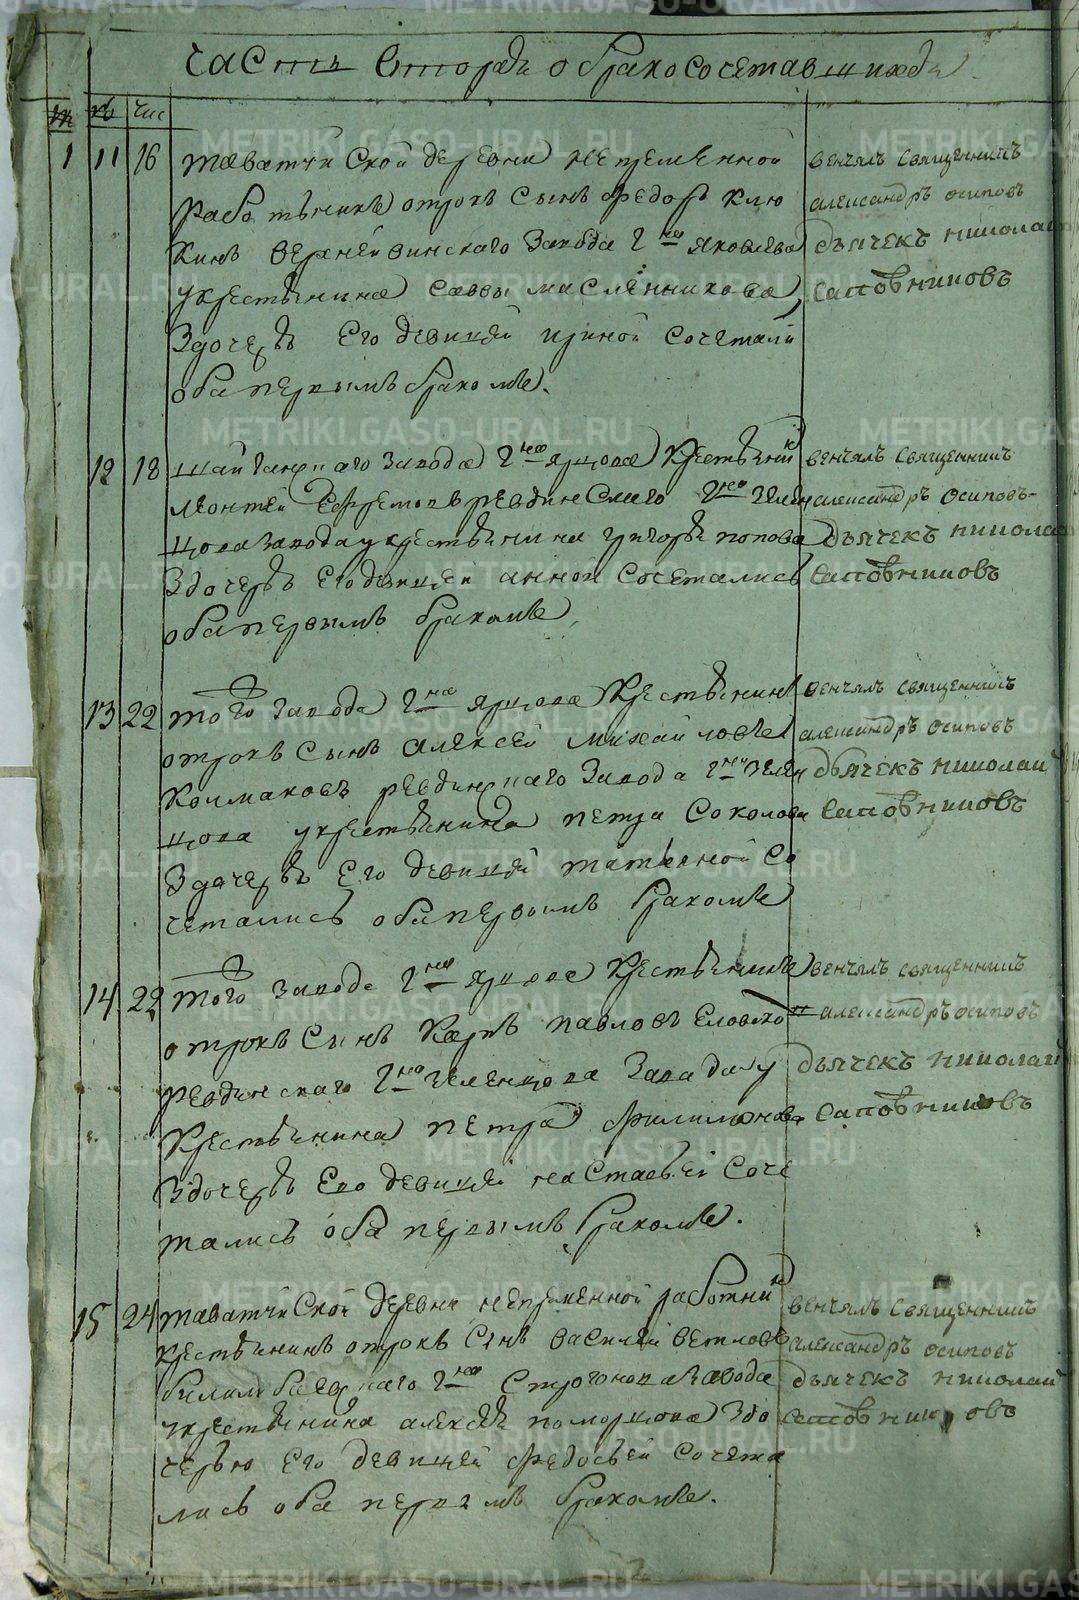 часть вторая о бракосочетавшихся
м № чис
1 11 16 таватуйской деревни непременной
работникъ отрокъ сынъ федоръ клю
кинъ верхнейвинскаго завода гна яковлева
укрестьянина саввы масленникова
здочерью его девицей ириной сочетали
оба первымъ бракомъ.
венчалъ священникъ
александръ осиповъ
дьячекъ николай
сапожниковъ
12 18 шайтанскаго завода гна ярцова крестьянинъ
леонтей ефремовъ ревдинскаго гна зелен
цова завода укрестьянина григорья попова
здочерью его девицей анной сочетались
оба первымъ бракомъ
венчалъ священникъ
александръ осиповъ
дьячекъ николай
сапожниковъ
13 22 того завода гна ярцова крестьянинъ
отрокъ сынъ алексей михайловъ
колмаковъ ревдинскаго завода гна зелен
цова укрестьянина петра соколова
здочерью его девицей татьяной со
четались оба первымъ бракомъ
венчалъ священникъ
александръ осиповъ
дьячекъ николай
сапожниковъ
14 22 того завода гна ярцова крестьянинъ
отрокъ сынъ карпъ павловъ
ревдинскаго гна зеленцова завода у
крестьянина петра филимонова
здочерью его девицей настасьей соче
тались оба первымъ бракомъ.
венчалъ священникъ
александръ осиповъ
дьячекъ николай
сапожниковъ
15 24 таватуйской деревни непременной работникъ
крестьянинъ отрокъ сынъ василей ветловъ
билимбаевскаго гна строгонова завода
укрестьянина алексея поморцова здо
черью его девицей федосьей сочета
лись оба первымъ бракомъ.
венчалъ священникъ
александръ осиповъ
дьячекъ николай
сапожниковъ
METRIKI.GASO-URAL.RU